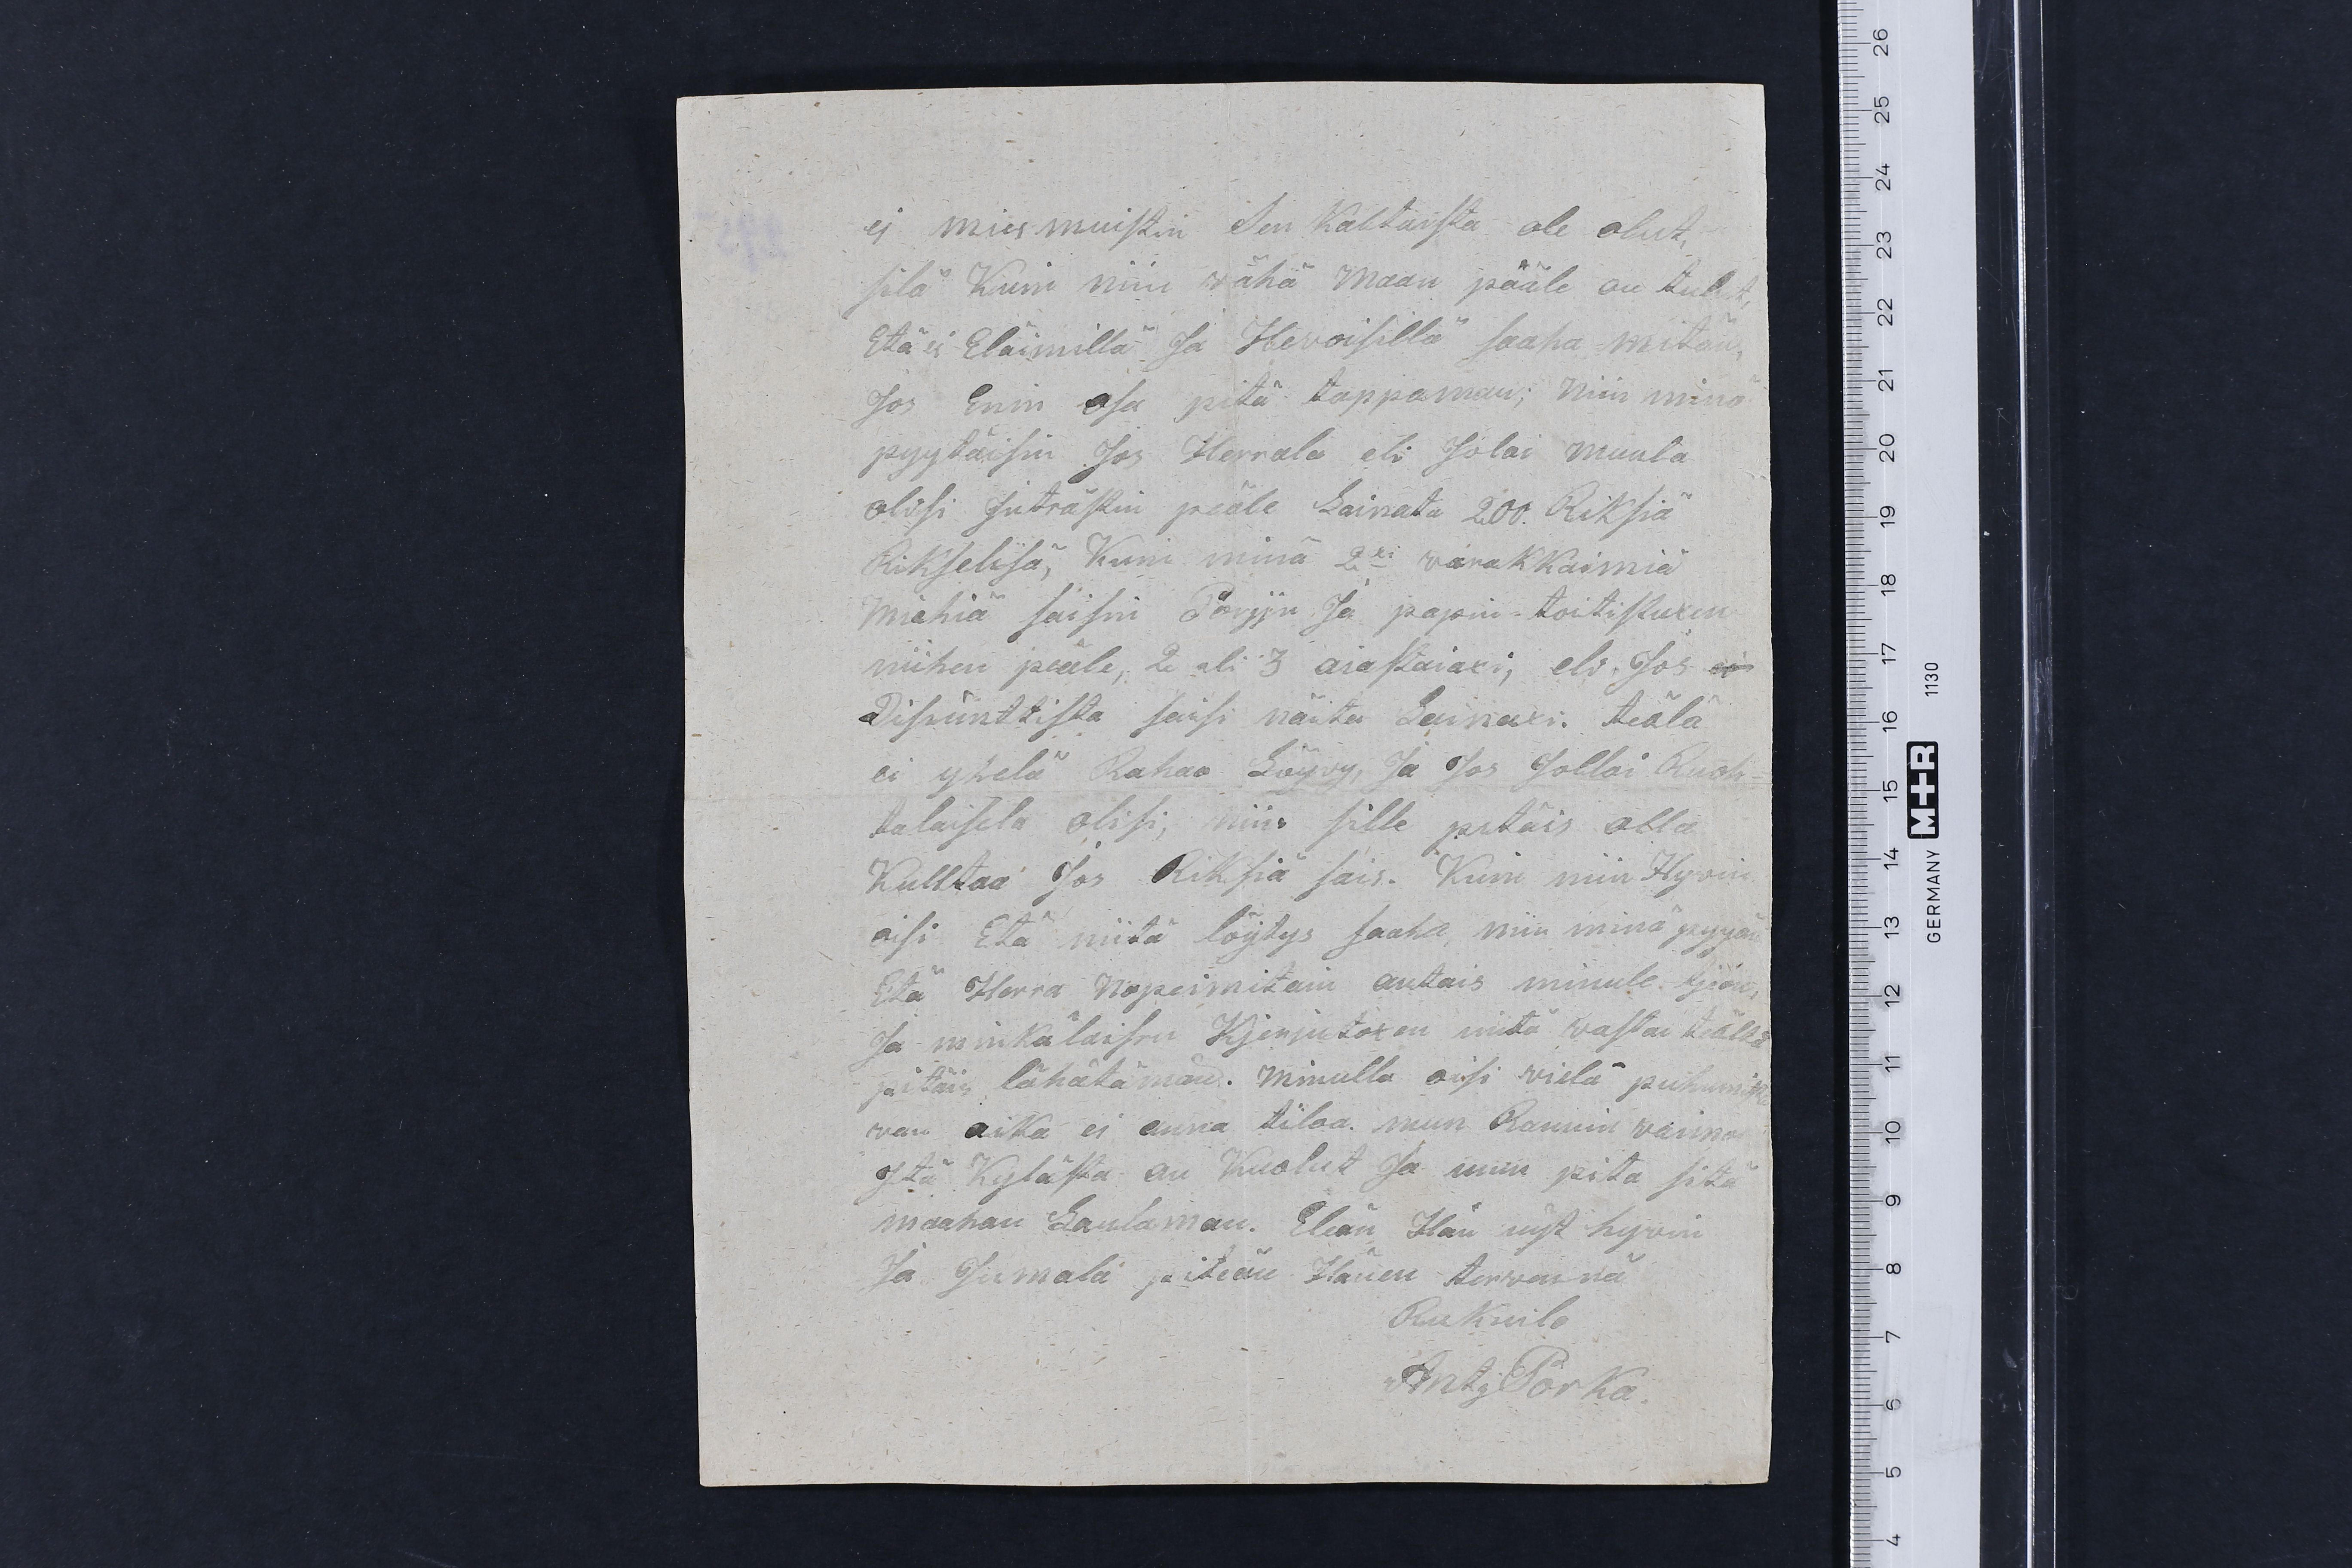 ej mies muistin Sen Kaltaista ole olut,
silä Kuin niin vähä Maan pääle on tulut,
Etä ei Eläimillä Ja Hevoisillä saaha mitän,
Jos Enin osa pitä tappaman; Niin minä
pyytäisin Jos Herrala eli Jolai muula
olissi Jnträstin pääle Lainata 200. Riksiä
Rikselisä, Kuin minä 2xi varakkaimia
Miehiä saisin Porjjn Ja papin-toitistuxen
niihen pääle, 2 eli 3 aiastaiaxi; eli Jos
Disrunttista saisi näitä Lainaxi. teälä
ei yhelä Rahaa Löyvy, Ja Jos Jollai Ruoh-
talaisela olisi, niin sille pitäis olla
Kulltaa Jos Riksiä sais. Kuin niin Hyvin
oisi Etä niitä löytys saaha, niin minä pyyän
Etä Herra Nopeimitain antais minule tjion,
Ja minkälaisen Kjerjutoxen niitä vastan teältä
pitäis lähätämän. Minulla oisi vielä puhumista
van aika ei anna tiloa. mun Rannin vaimo
Jtä Kylästä on Kuolut Ja mun pitä sitä
maahan Laulaman. Eleän Hän nyt hyvin
Ja Jumala piteän Hänen tervennä
Rukoilo
Antj Porka.
26
25
24
23
22
21
20
19
18
17
16
15
14
13
12
11
10
9
8
7
6
5
4
GERMANY M+R 1130